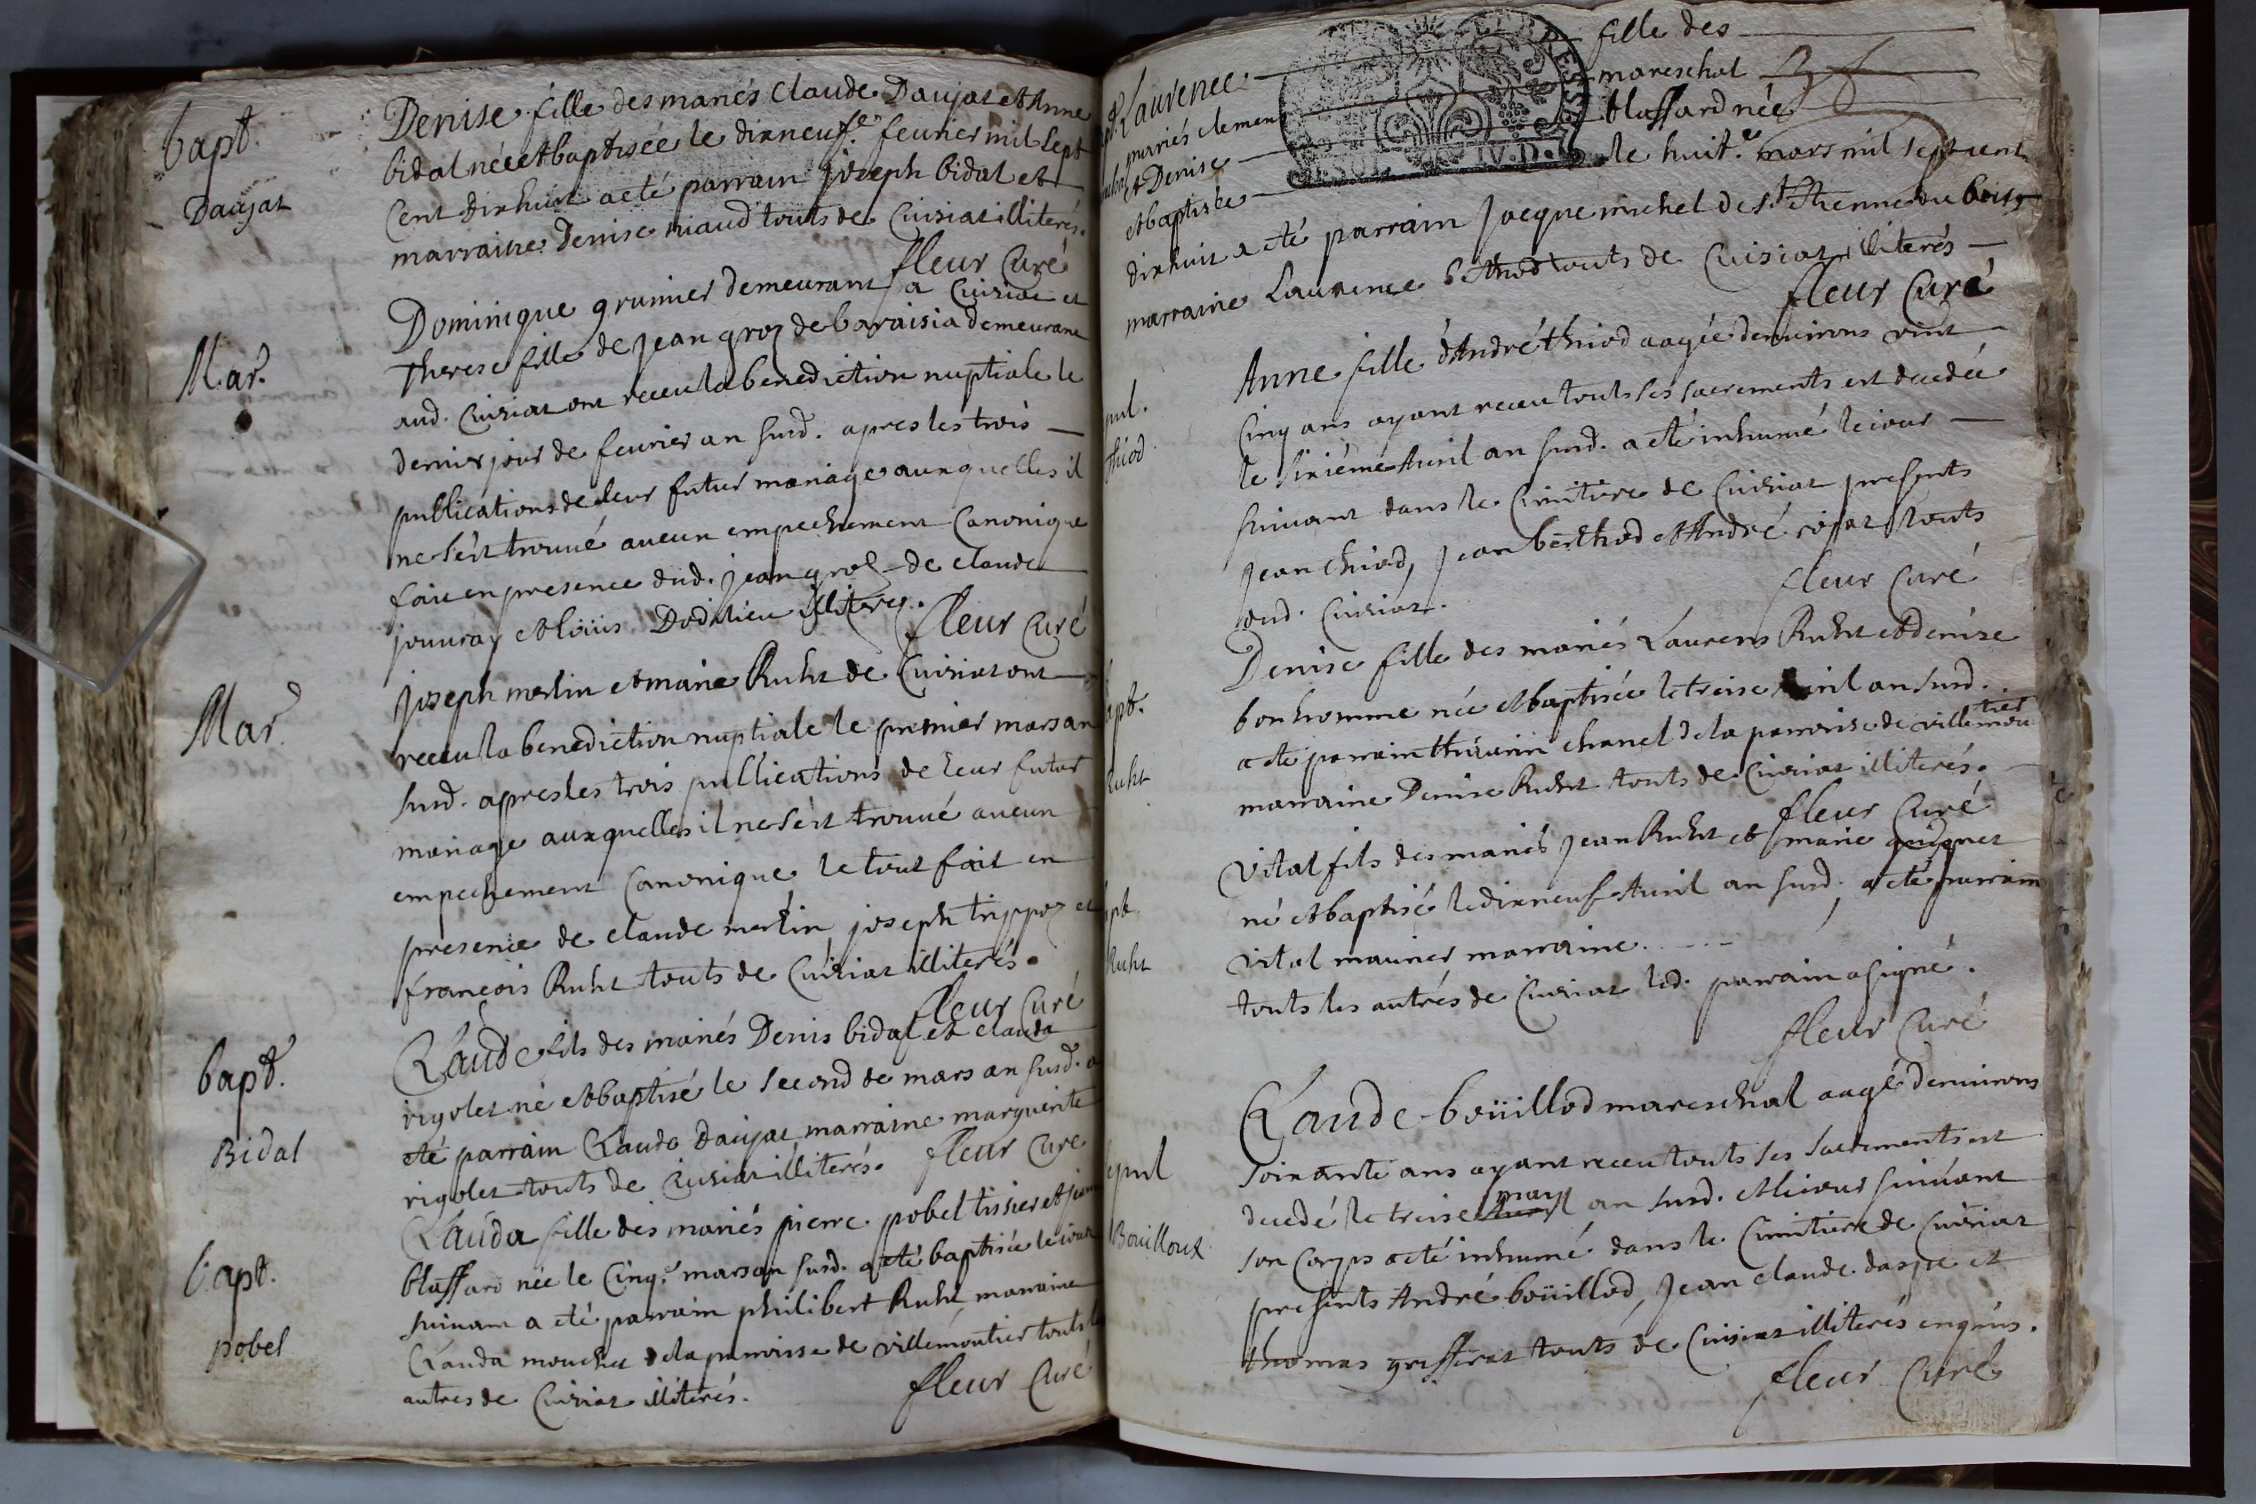 bapt.
Daujat
Denise fille des mariés Claude Daujat et Anne
bidal née et baptisée le dixneuf.e fevrier mil sept
cent dixhuit a eté parrain joseph bidal et
marraine Denise niaud touts de Cuisiat illiterés.
fleur Curé
Mar.
Dominique grunier demeurant a Cuisiat et
Therese fille de jean groz de baraisia demeurant
aud. Cuisiat ont receu la benediction nuptiale le
dernier jour de fevrier an susd. apres les trois
publications de leur futur mariage auxquelles il
ne sést trouvé aucun empechement Canonique
fait en presence dud. jean groz de claude
jouvray et loüis Dodalieu illiterés.
fleur Curé
Mar.
joseph merlin et marie Ruht de Cuisiat ont
receu la benediction nuptiale le premier mars an
susd. apres les trois publications de leur futur
mariage auxquelles il ne sést trouvé aucun
empechement Canonique le tout fait en
presence de claude merlin joseph trippoz et
francois Ruht touts de Cuisiat illiterés.
fleur Curé
bapt.
Bidal
Claude fils des mariés Denis bidal et clauda
rigolet né et baptisé le second de mars an susd. a
eté parrain Claude Daujat marraine marguerite
rigolet touts de Cuisiat illiterés. fleur Curé
bapt.
pobel
Clauda fille des mariés pierre pobel tissier et jeanne
blaffard née le Cinq.e mars an susd. a eté baptisée le iour
suivant a eté parrain philibert Ruht, marraine
Clauda mouchet de la parroisse de villemoutier touts les
autres de Cuisiat illiterés.
fleur Curé
Laurence fille des
mariés clement mareschal
et Denise blaffard née
et baptisée le huit.e mars mil sept cent
dixhuit a eté parrain jacque michel de st. Etienne du bois
marraine Laurence touts de Cuisiat illiterés
fleur Curé
pul.
thiod
Anne fille d'André thiod aagée denvirons vint
Cinq ans ayant receu touts ses sacrements est decedée
le sixiéme Avril an susd. a eté inhumé le iour
suivant dans le Cimitiere de Cuisiat presents
jean thiod, jean berthod et André touts
dud. Cuisiat.
fleur Curé
apt.
Ruht
Denise fille des mariés Laurens Ruht et denise
bonhomme née et baptisée le treise Avril an susd.
a eté parrain thévenin chanel de la parroise de villemoutier
marraine Denise Ruht touts de Cuisiat illiterés.
fleur Curé
apt.
Ruht
Vital fils des mariés jean Ruht et marie guignet
né et baptisé le dixneuf Avril an susd. a eté parrain
vital maunier marraine . . . . .
touts les autrés de Cuisiat led. parrain a signé.
fleur Curé
epul
Bouilloux
Claude boüillod mareschal aagé denvirons
soixante ans ayant receu touts ses sacrements est
decedé le treise may an susd. et le iour suivant
son Corps a eté inhumé dans le Cimitiere de Cuisiat
presents André boüillod, jean claude daspe et
thomas griffirat touts de Cuisiat illiterés enquis.
fleur Curé